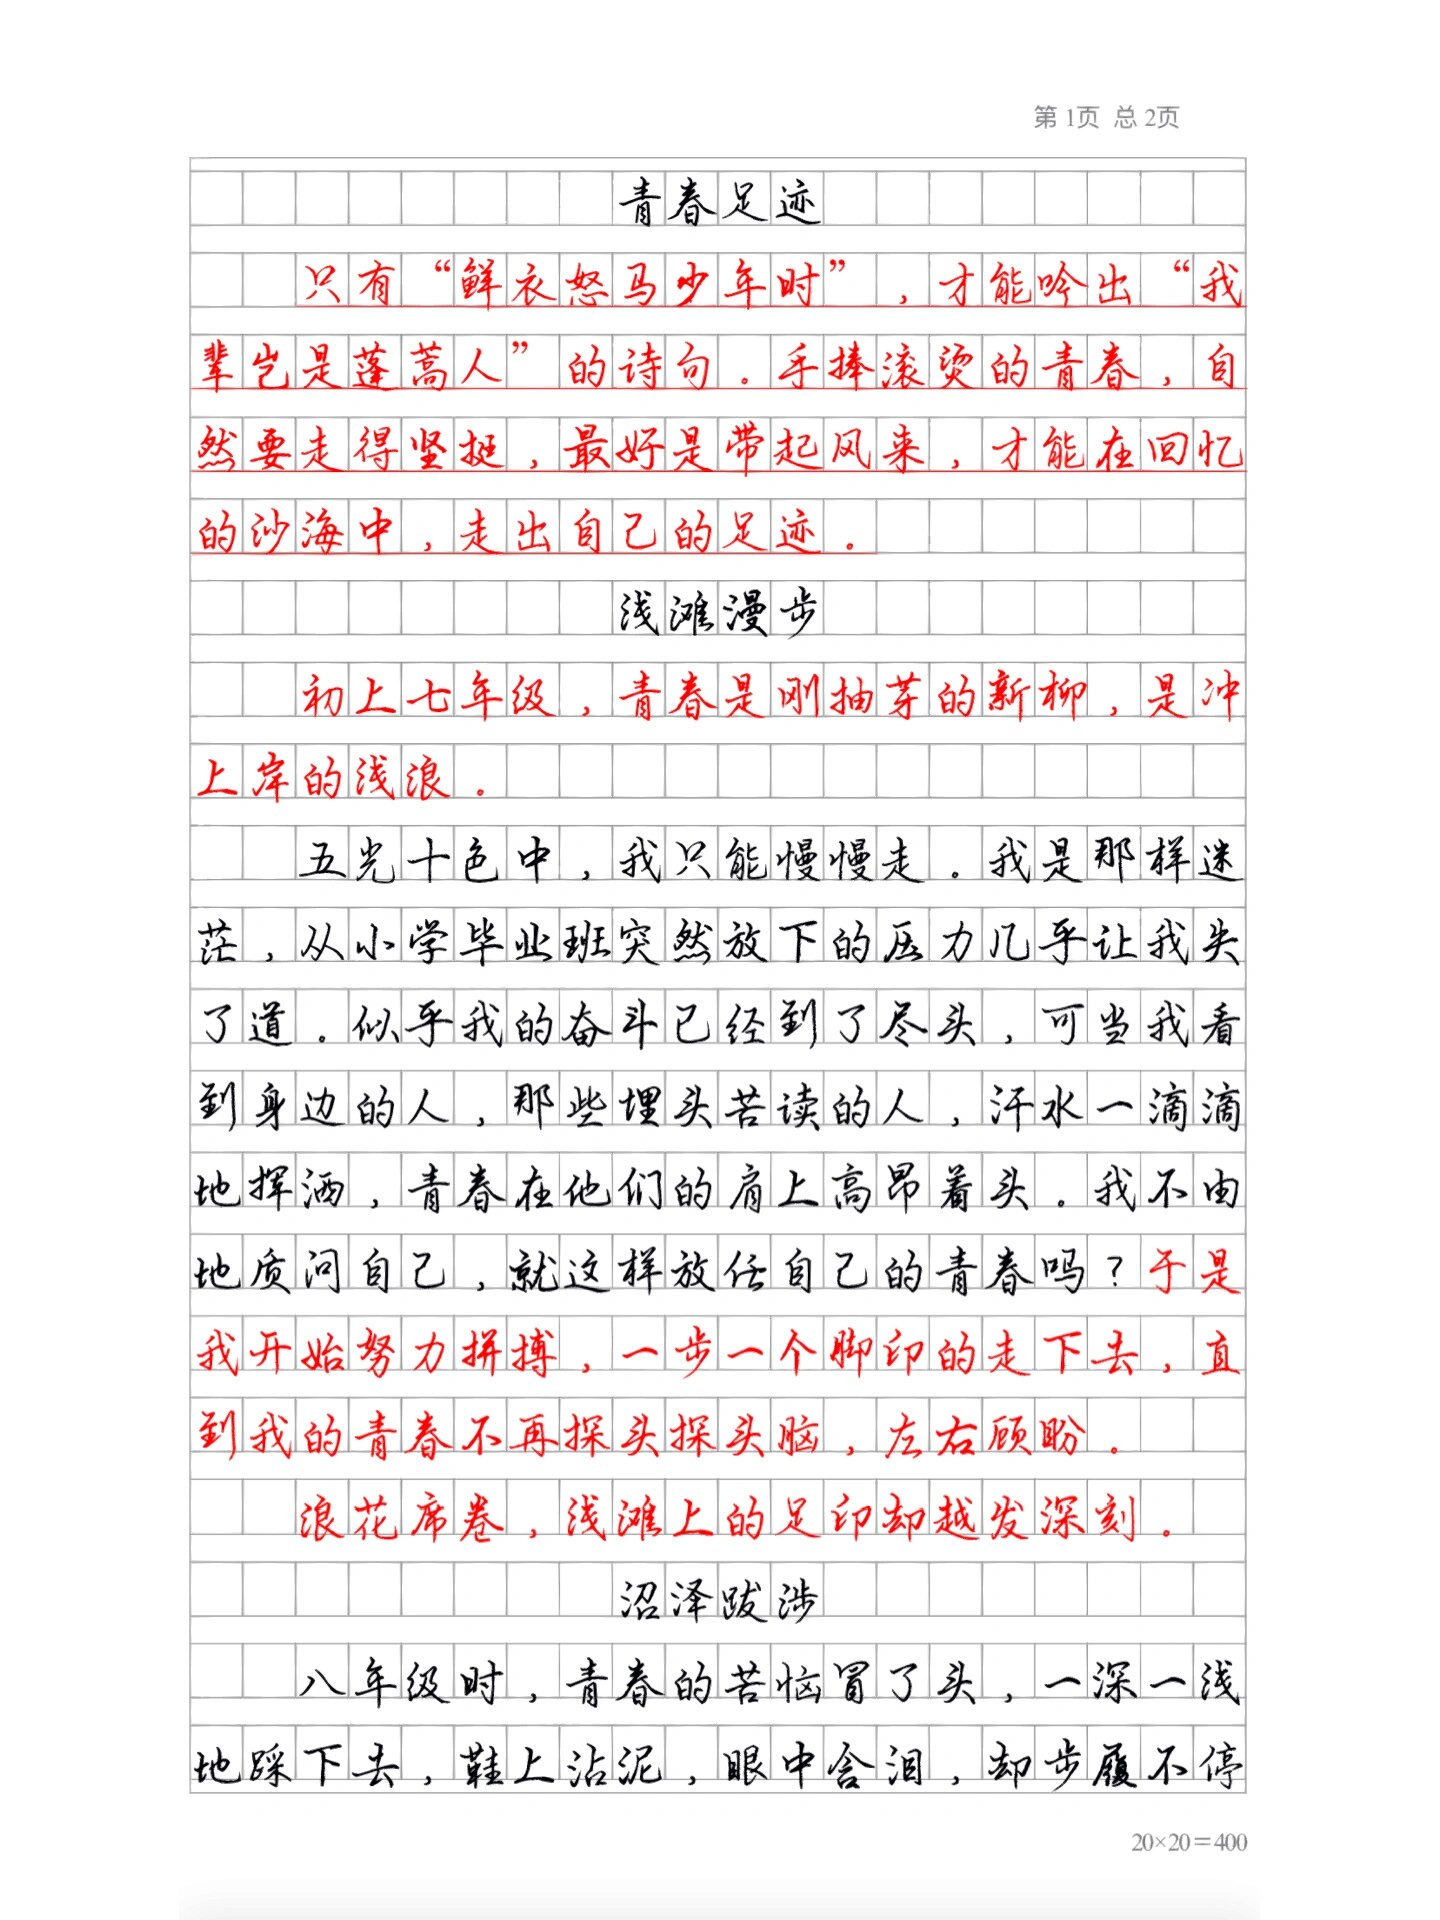 第1页 总2页
青春足迹
只有“鲜衣怒马少年时”，才能吟出“我
辈岂是蓬蒿人”的诗句。手捧滚烫的青春，自
然要走得坚挺，最好是带起风来，才能在回忆
的沙海中，走出自己的足迹。
浅滩漫步
初上七年级，青春是刚抽芽的新柳，是冲
上岸的浅浪。
五光十色中，我只能慢慢走。我是那样迷
茫，从小学毕业班突然放下的压力几乎让我失
了道。似乎我的奋斗已经到了尽头，可当我看
到身边的人，那些埋头苦读的人，汗水一滴滴
地挥洒，青春在他们的肩上高昂着头。我不由
地质问自己，就这样放任自己的青春吗？于是
我开始努力拼搏，一步一个脚印的走下去，直
到我的青春不再探头探头脑，左右顾盼。
浪花席卷，浅滩上的足印却越发深刻。
沼泽跋涉
八年级时，青春的苦恼冒了头，一深一浅
地踩下去，鞋上沾泥，眼中含泪，却步履不停
20×20＝400